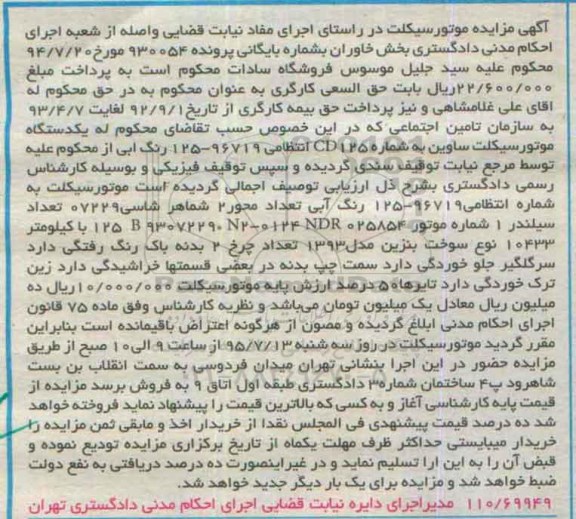 آگهی مزایده موتورسیکلت در راستای اجرای مفاد نیابت قضایی واصله از شعبه اجرای
احکام مدنی دادگستری بخش خاوران بشماره بایگانی پرونده ۹۳۰۰۵۴ مورخ ۹۴/۷/۲۰
محکوم علیه سید جلیل موسوس فروشگاه سادات محکوم است به پرداخت مبلغ
۲۲/۶۰۰/۰۰۰ریال بابت حق السعی کارگری به عنوان محکوم به در حق محکوم له
اقای علی غلامشاهی و نیز پرداخت حق بیمه کارگری از تاریخ ۹۲/۹/۱ لغایت ۹۳/۴/۷
به سازمان تامین اجتماعی که در این خصوص حسب تقاضای محکوم له یکدستگاه
موتورسیکلت ساوین به شماره CD۱۲۵ انتظامی ۹۶۷۱۹-۱۲۵ رنگ ابی از محکوم علیه
توسط مرجع نیابت توقیف سندی گردیده و سپس توقیف فیزیکی و بوسیله کارشناس
رسمی دادگستری بشرح ذل ارزیابی توصیف اجمالی گردیده است موتورسیکلت به
شماره انتظامی ۹۶۷۱۹-۱۲۵ رنگ آبی تعداد محور۲ شماهر شاسی ۰۷۲۲۹ تعداد
سیلندر ۱ شماره موتور ۰۲۵۸۵۴ N۲-۰۱۲۴ NDR ۱۲۵ B ۹۳۰۷۲۲۹۰ با کیلومتر
۱۰۴۳۳ نوع سوخت بنزین مدل۱۳۹۳ تعداد چرخ ۲ بدنه باک رنگ رفتگی دارد
سرگلگیر جلو خوردگی دارد سمت چپ بدنه در بعضی قسمتها خراشیدگی دارد زین
ترک خوردگی دارد تایرها۵۰ درصد ارزش پایه موتورسیکلت ۱۰/۰۰۰/۰۰۰ریال ده
میلیون ریال معادل یک میلیون تومان می‌باشد و نظریه کارشناس وفق ماده ۷۵ قانون
اجرای احکام مدنی ابلاغ گردیده و مصون از هرگونه اعتراض باقیمانده است بنابراین
مقرر گردید موتورسیکلت در روز سه شنبه ۹۵/۷/۱۳ از ساعت ۹ الی۱۰ صبح از طریق
مزایده حضور در این اجرا بنشانی تهران میدان فردوسی به سمت انقلاب بن بست
شاهرود پ۴ ساختمان شماره۳ دادگستری طبقه اول اتاق ۹ به فروش برسد مزایده از
قیمت پایه کارشناسی آغاز و به کسی که بالاترین قیمت را پیشنهاد نماید فروخته خواهد
شد ده درصد قیمت پیشنهدی فی المجلس نقدا از خریدار اخذ و مابقی ثمن مزایده را
خریدار میبایستی حداکثر ظرف مهلت یکماه از تاریخ برگزاری مزایده تودیع نموده و
قبض آن را به این ارا تسلیم نماید و در غیراینصورت ده درصد دریافتی به نفع دولت
ضبط خواهد شد و مزایده برای یک بار دیگر جدید خواهد شد.
۱۱۰/۶۹۹۴۹ مدیراجرای دایره نیابت قضایی اجرای احکام مدنی دادگستری تهران